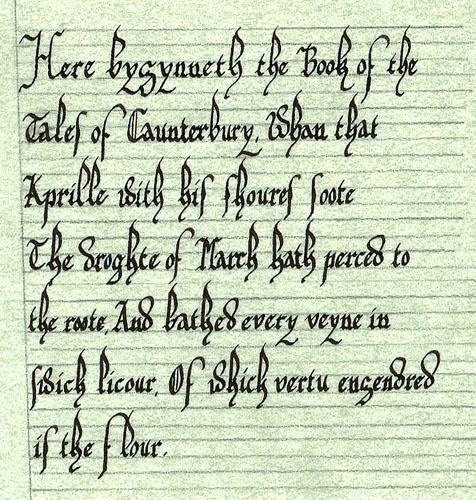 Here bygynneth the Book of the
Tales of Caunterbury. Whan that
Aprille with his shoures soote
The droghte of March hath perced to
the roote, And bathed every veyne in
swich licour, Of which vertu engendred
is the flour.